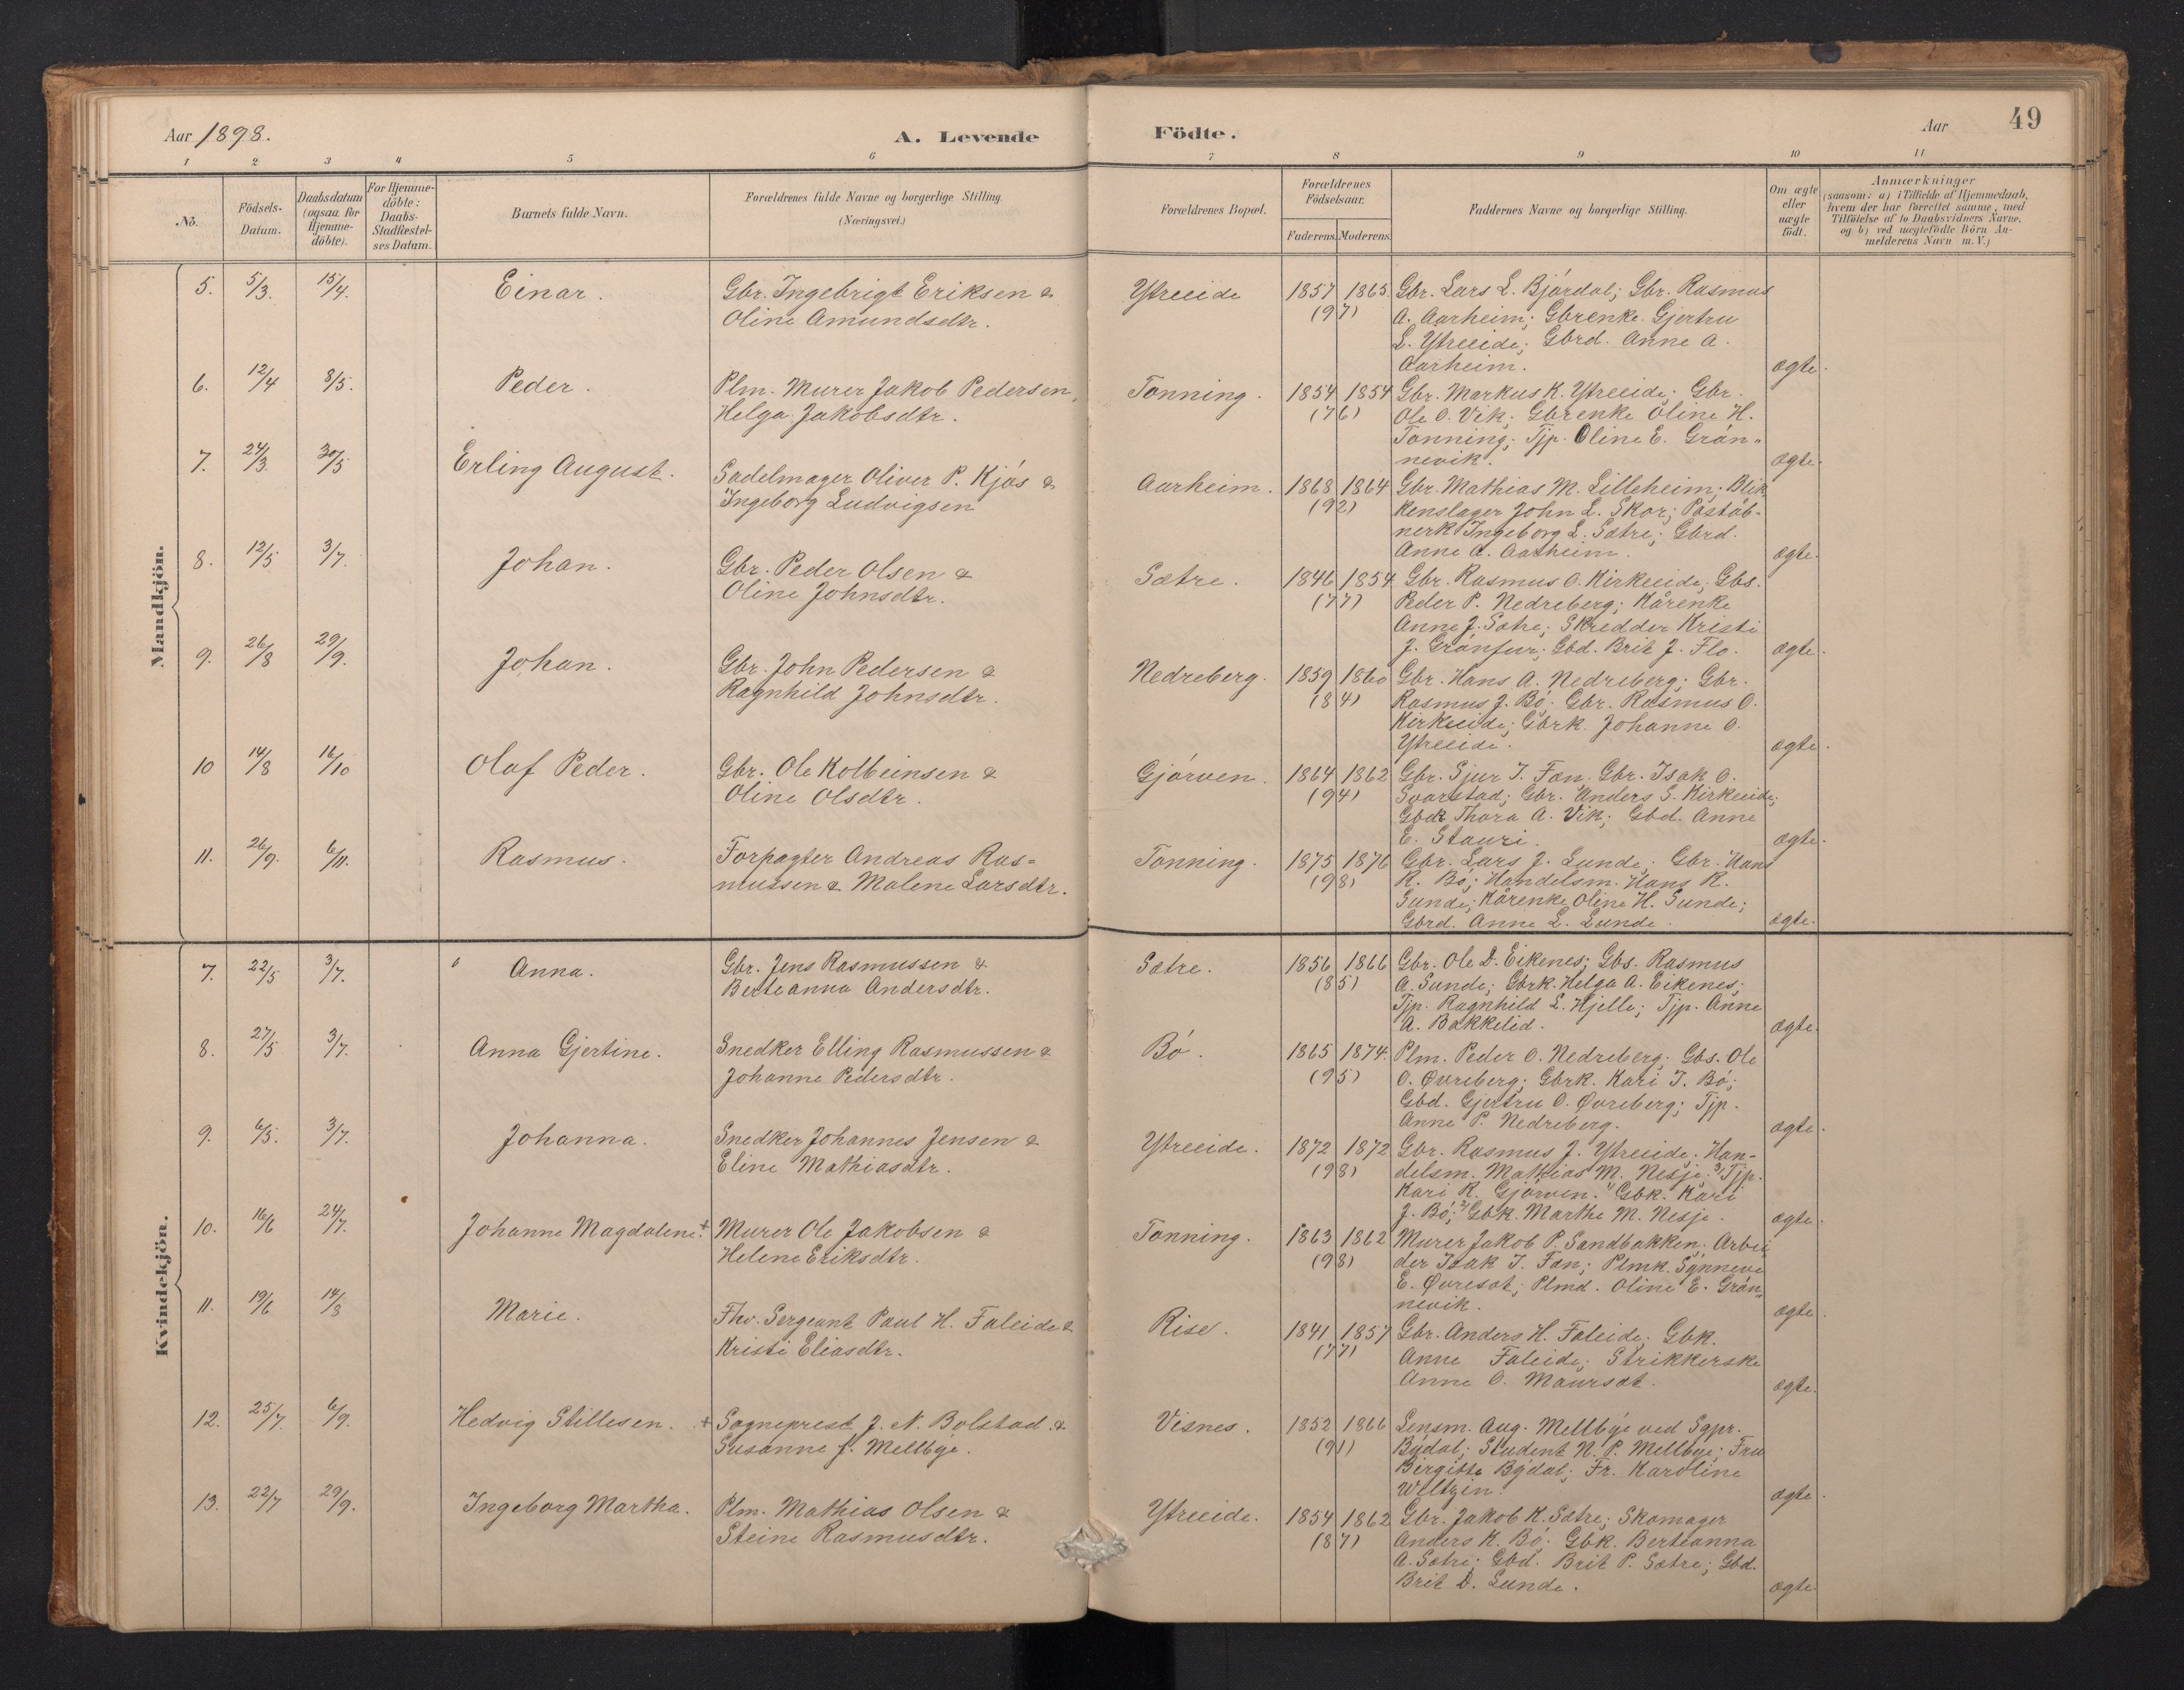 Aar 1898.
A. Levende
Födte.
Aar
49
1 2 3 4 5 6
7 8 9 10 11
No.
Födsels-Datum.
Daabsdatum (ogsaa for Hjemme-döbte).
For Hjemme-döbte: Daabs-Stadfæstel-ses Datum.
Barnets fulde Navn.
Forældrenes fulde Navne og borgerlige Stilling.
(Næringsvei.)
Forældrenes Bopæl.
Forældrenes Födselsaar.
Faderens. Moderens.
Faddernes Navne og borgerlige Stilling.
Om ægte eller uægte födt.
Anmærkninger
(saasom: a) i Tilfælde af Hjemmedaab,
hvem der har forrettet samme, med
Tilföielse af to Daabsvidners Navne,
og b) ved uægtefödte Börn An-
melderens Navn m. V.)
Mandkjön.
5. 5/3. 15/4. Einar. Gbr. Ingebrigt Eriksen &
Oline Amundsdtr.
Ytreeide 1857 1865. (97)
Gbr. Lars L. Bjórdal; Gbr. Rasmus
A. Aarheim; Gbrenke Gjertru
L. Ytreeide; Gbrd. Anne A.
Aarheim. ægte.
6. 12/4 8/5. Peder. Plm. Murer Jakob Pedersen,
Helga Jakobsdtr.
Tonning. 1854 1854 (76)
Gbr. Markus K. Ytreeide; Gbr.
Ole O. Vik; Gbrenke Oline H.
Tonning; Tjp. Oline E. Grón-
nevik. ægte.
7. 24/3. 30/5 Erling August. Sadelmager Oliver P. Kjós &
Ingeborg Ludvigsen
Aarheim. 1868 1864 (92)
Gbr. Mathias M. Lilleheim; Blik
kenslager John L. Skor; Postáb-
nerk Ingeborg L. Sætre; Gbrd.
Anne A. Aarheim. ægte.
8. 12/5 3/7. Johan. Gbr. Peder Olsen &
Oline Johnsdtr.
Sætre. 1846 1854 (77)
Gbr. Rasmus O. Kirkeeide; Gbs.
Peder P. Nedreberg; Kårenke
Anne J. Sætre; Skredder Kristi
J. Grónfur; Gbd. Brit J. Flo. ægte.
9. 26/8 29/9. Johan. Gbr. John Pedersen &
Ragnhild Johnsdtr.
Nedreberg. 1859 1860 (84)
Gbr. Hans A. Nedreberg; Gbr.
Rasmus J. Bó; Gbr. Rasmus O.
Kirkeeide; Gbrk. Johanne O.
Ytreeide. ægte.
10 14/8 16/10 Olaf Peder. Gbr. Ole Kolbeinsen &
Oline Olsdtr.
Gjórven. 1864 1862 (94)
Gbr. Sjur I. Fæn. Gbr. Isak O.
Svarstad; Gbr. Anders S. Kirkeeide;
Gbdr Thora A. Vik; Gbd. Anne
E. Stauri. ægte.
11. 26/9. 6/11. Rasmus. Forpagter Andreas Ras-
mussen & Malene Larsdtr.
Tonning. 1875 1876 (98)
Gbr. Lars J. Lunde; Gbr. Hans
R. Bó; Handelsm. Hans R.
Sunde; Kårenke Oline H. Sunde;
Gbrd. Anne L. Lunde. ægte.
Kvindekjön.
7. 22/5 3/7. Anna. Gbr. Jens Rasmussen &
Berteanna Andersdtr.
Sætre. 1856 1866 (85)
Gbr. Ole D. Eikenes; Gbs. Rasmus
A. Sunde; Gbrk. Helga A. Eikenes;
Tjp. Ragnhild L. Hjelle; Tjp. Anne
A. Bakkelid. ægte.
8. 27/5 3/7. Anna Gjertine. Snedker Elling Rasmussen &
Johanne Pedersdtr.
Bó. 1865 1874. (95)
Plm. Peder O. Nedreberg; Gbs. Ole
O. Øvreberg; Gbrk. Kari I. Bó;
Gbd. Gjertru O. Øvreberg; Tjp.
Anne P. Nedreberg. ægte.
9. 6/5. 3/7. Johanna. Snedker Johannes Jensen &
Eline Mathiasdtr.
Ytreeide. 1872 1872 (98)
Gbr. Rasmus J. Ytreeide; Han-
delsm. Mathias M. Nesje. 3) Tjp.
Kari R. Gjórven. 1) Gbk. Kari
J. Bó; 2) Gbk. Marthe M. Nesje. ægte.
10. 16/6 24/7. Johanne Magdalene. + Murer Ole Jakobsen &
Helene Eriksdtr.
Tonning. 1863 1862 (98)
Murer Jakob P. Sandbakken; Arbei
der Isak I. Fæn; Plmk. Synneve
E. Øvresæt; Plmd. Oline E. Grón-
nevik. ægte.
11. 19/6 14/8 Marie. Fhv. Sergeant Paul H. Faleide &
Kristi Eliasdtr.
Rise. 1841 1857 (77)
Gbr. Anders H. Faleide; Gbk.
Anne Faleide; Strikkerske
Anne O. Maursæt. ægte.
12. 25/7. 6/9. Hedvig Stillesen. + Sogneprest J. N. Bolstad. &
Susanne f. Mellbýe.
Visnes. 1852 1866 (91)
Lensm. Aug. Mellbýe ved Sgpr.
Býdal; Student N. P. Mellbye; Fru
Birgitte Býdal; Fr. Karoline
Weltzin. ægte.
13. 22/7 29/9. Ingeborg Martha. Plm. Mathias Olsen &
Steine Rasmusdtr.
Ytreeide. 1854 1862 (87)
Gbr. Jakob K. Sætre; Skomager
Anders K. Bó; Gbk. Berteanna
A. Sætre; Gbd. Brit P. Sætre; Gbd.
Brit D. Sunde. ægte.